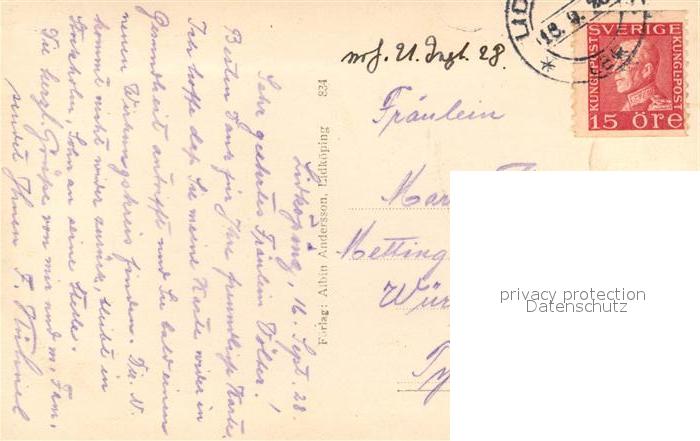 Lidköping, 16. Sept. 28.
Sehr geehrtes Fräulein Völker!
Besten Dank für Ihre freundliche Karte.
Ich hoffe daß Sie meine Karte wider in
Gesundheit antrifft und Sie bald einen
neuen Wirkungskreis finden. Die N.
kommt nicht wider zurück, bleibt in
Stockholm, Sohn an seine Stelle.
Die herzl. Grüße von mir und m. Fam.
sendet Ihnen F.
Förlag: Albin Andersson, Lidköping 824
21. Sept. 28.
LID
18. 9. 28
SVERIGE
KUNGL.POST
KUNGL.POST
15 ÖRE
Fräulein
Mar
Metting
Wür
privacy protection
Datenschutz